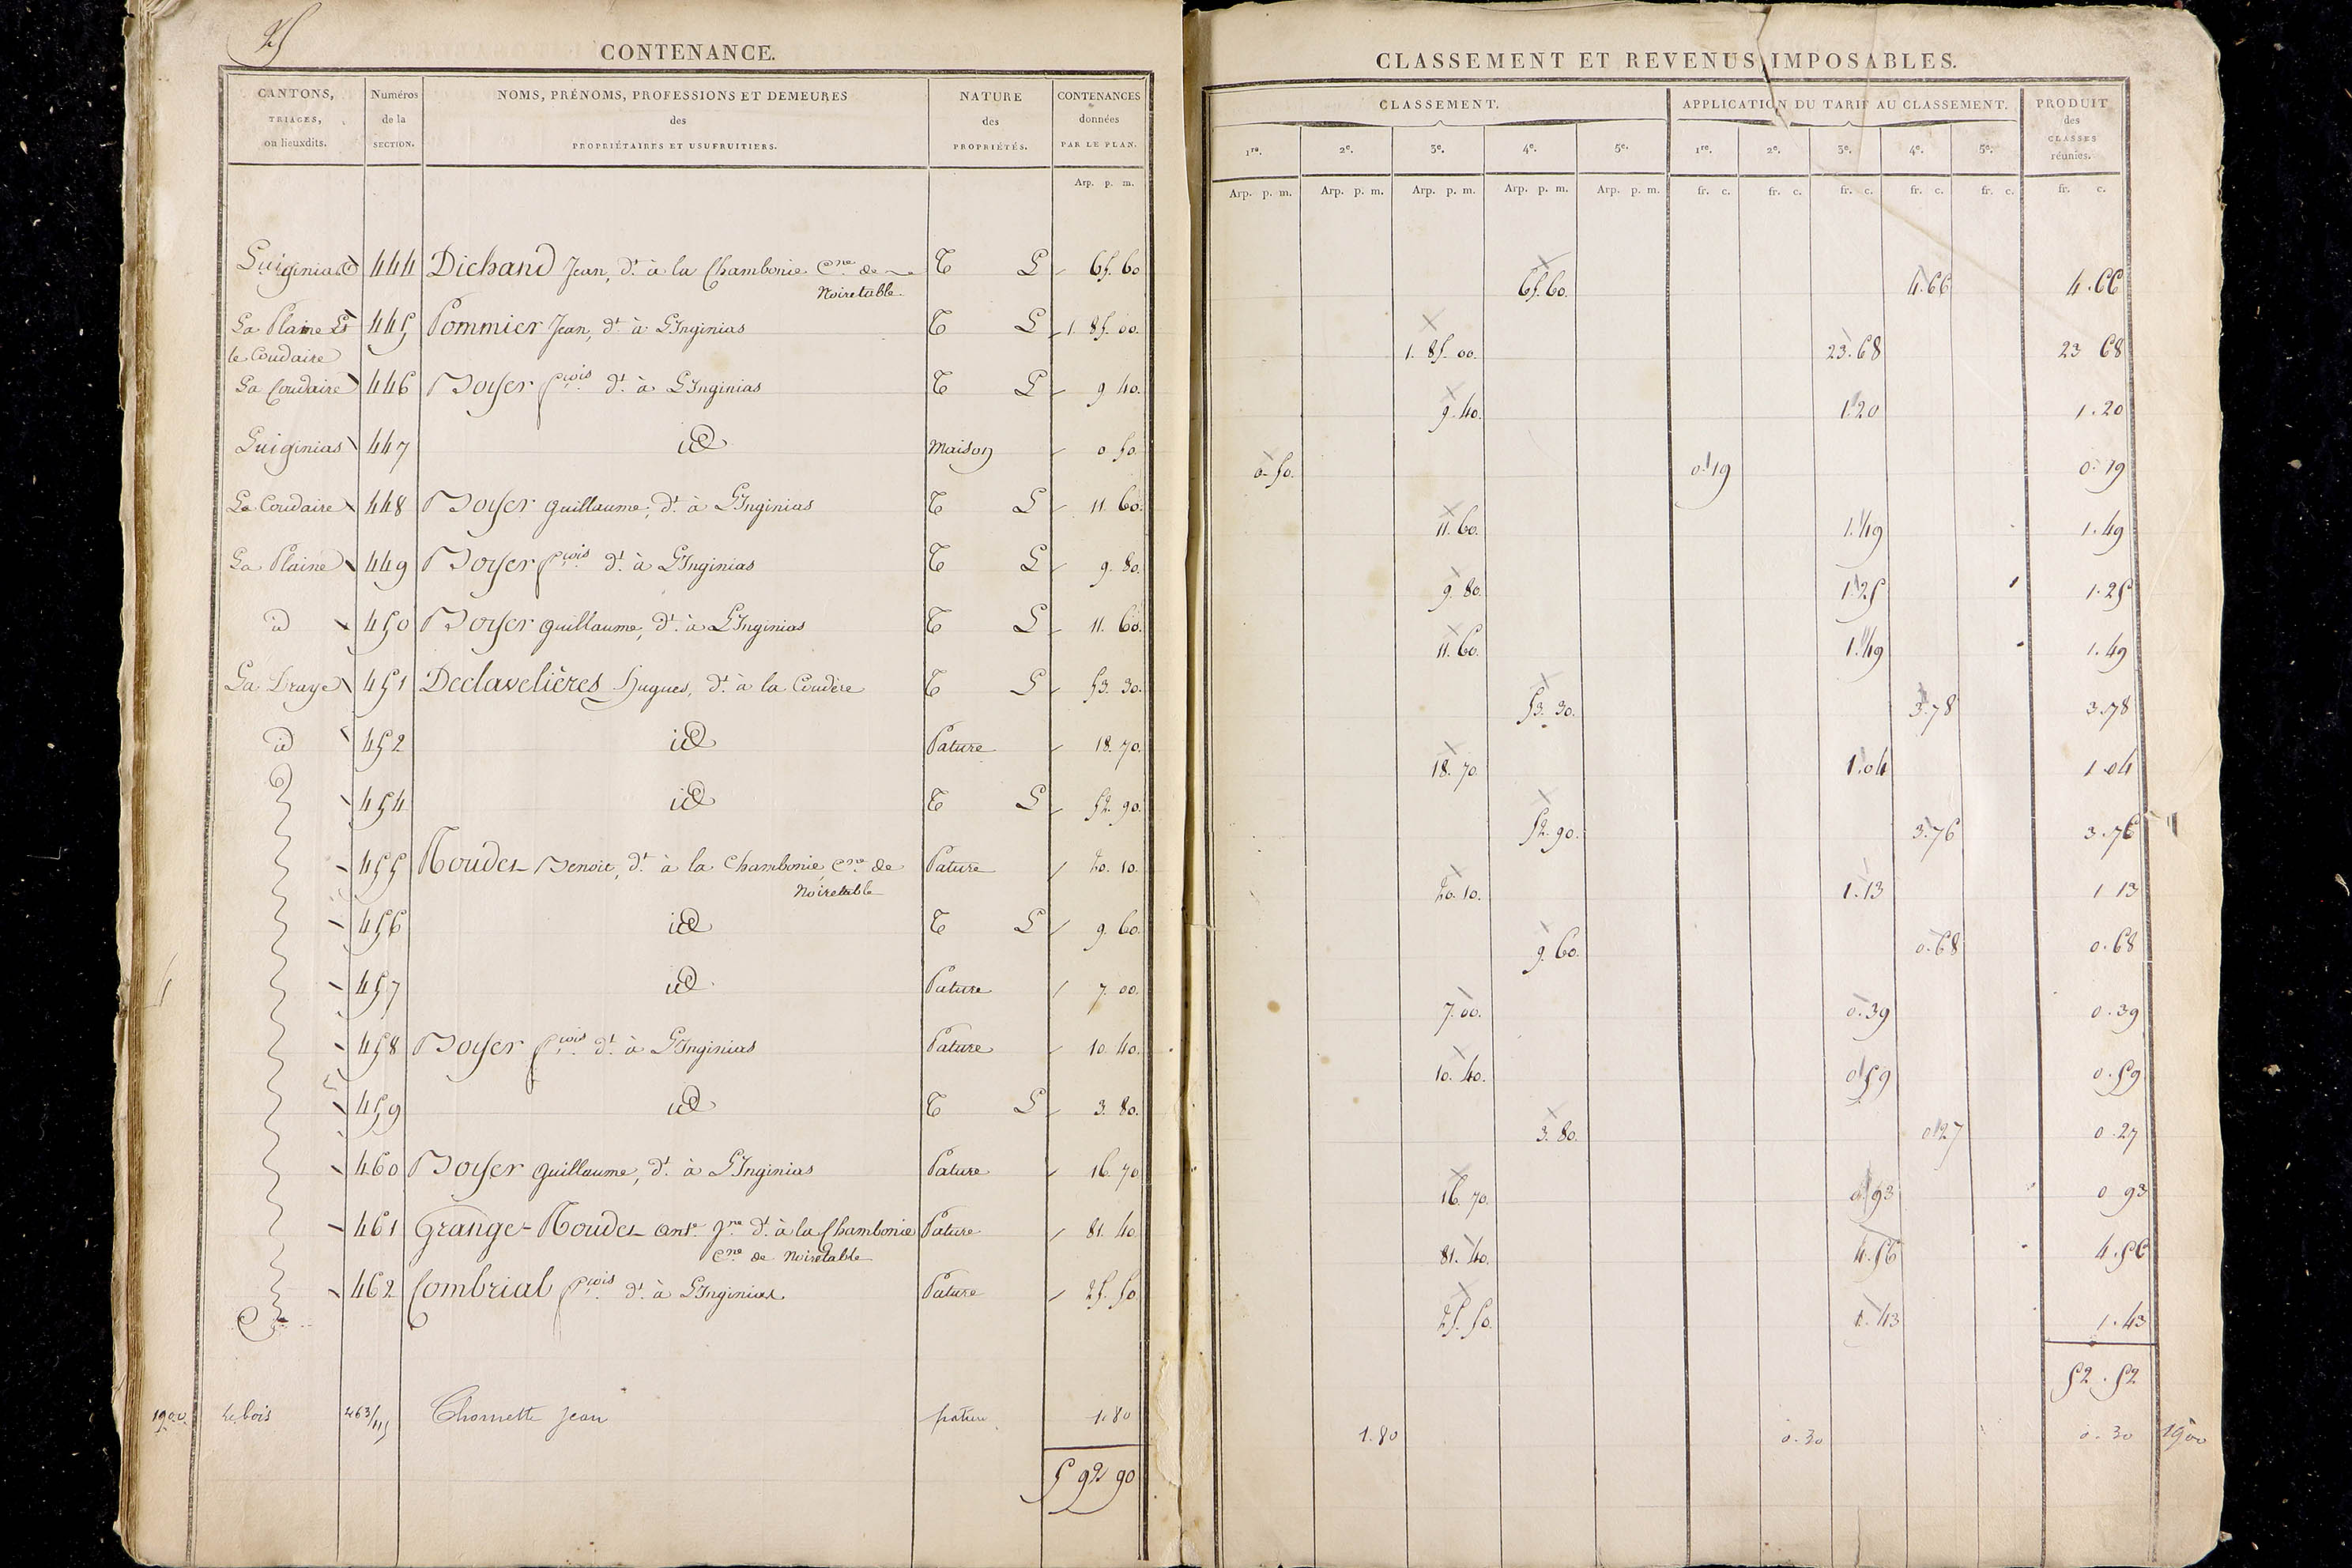 25
CONTENANCE.
CANTONS, TRIAGES, ou lieuxdits.
Numéros de la SECTION.
NOMS, PRÉNOMS, PROFESSIONS ET DEMEURES des PROPRIÉTAIRES ET USUFRUITIERS.
NATURE des PROPRIÉTÉS.
CONTENANCES données PAR LE PLAN.
Arp. p. m.
444 Dichand Jean, dt. à la Chambonie Cne. de T L 65. 60
Noiretable
La Plaine Et 445 Pommier Jean, dt. à L'Inginias T L 1. 85. 00.
le Coudaire
La Coudaire 446 Boyer fcois dt. à L'Inginias T L 9 40.
Luiginias 447 id Maison 0 50
La Coudaire 448 Boyer guillaume, dt. à L'Inginias T L 11. 60.
La Plaine 449 Boyer fcois dt. à L'Inginias T L 9. 80.
id 450 Boyer guillaume, dt. à L'Inginias T L 11. 60.
La Draye 451 Declavelières hugues, dt. à la Coudère T L 53. 30.
id 452 id Pature 18. 70.
454 id T L 52. 90.
455 Roudes Benoit, dt. à la Chambonie Cne. de Pature 20. 10.
Noiretable
456 id T L 9. 60.
457 id Pature 7. 00.
458 Boyer fcois dt. à L'Inginias Pature 10. 40.
459 id T L 3. 80.
460 Boyer guillaume, dt. à L'Inginias Pature 16. 70
461 Grange-Roudes ant. dt. à la Chambonie Pature 81. 40.
Cne. de Noiretable
462 Combrial fcois dt. à L'Inginias Pature 25. 50
1900 Le bois 463/ Chomette Jean pature 1.80
5 92 90
CLASSEMENT ET REVENUS IMPOSABLES.
CLASSEMENT.
APPLICATION DU TARIF AU CLASSEMENT.
PRODUIT des CLASSES réunies.
1re. 2e. 3e. 4e. 5e. 1re. 2e. 3e. 4e. 5e.
Arp. p. m. Arp. p. m. Arp. p. m. Arp. p. m. Arp. p. m. fr. c. fr. c. fr. c. fr. c. fr. c. fr. c.
65. 60. 4.66 4.66
1. 85. 00. 23.68 23 68
9. 40. 1.20 1.20
0. 50. 0.19 0.19
11. 60. 1.49 1.49
9. 80. 1.25 1.25
11. 60. 1.49 1.49
53. 30. 3.78 3.78
18. 70. 1.04 1.04
52. 90. 3.76 3.76
20. 10. 1.13 1 13
9. 60. 0.68 0.68
7. 00. 0.39 0.39
10. 40. 0.59 0.59
3. 80. 0.27 0.27
16. 70. 0.93 0 93
81. 40. 4.56 4.56
25. 50. 1.43 1.43
52.52
1.80 0.30 0.30 1900